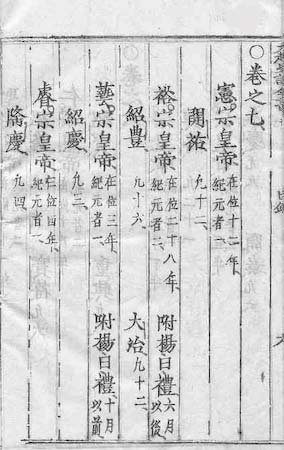 ○卷之七
憲宗皇帝 在位十二年、紀元者一、
開祐 凢十二、
裕宗皇帝 在位二十八年、紀元者二、 附楊日禮 六月以後
紹豊 凢十六、 大治 凢十二、
藝宗皇帝 在位三年、紀元者一、 附楊日禮 十月以前
紹慶 凢三、
睿宗皇帝 在位四年、紀元者一、
隆慶 凢四、